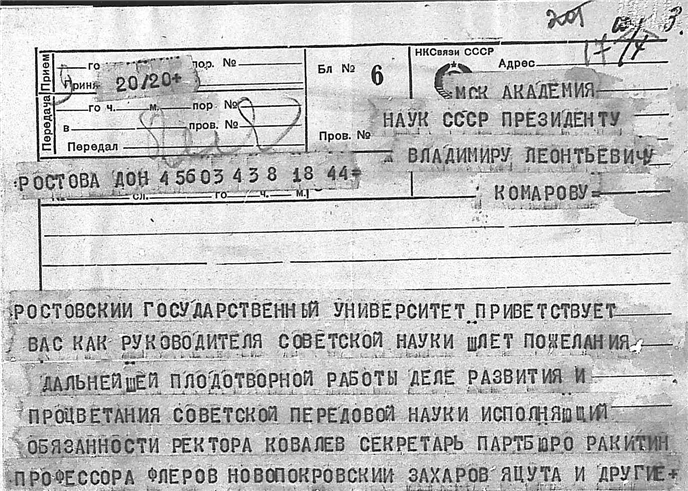 201 3.
17/4
Прием
го пор. №
Приня 20/20+
Передача
го ч. м. пор №
в пров. №
Передал
Бл № 6
Пров. №
НКСвязи СССР
Адрес
МСК АКАДЕМИЯ
НАУК СССР ПРЕЗИДЕНТУ
ВЛАДИМИРУ ЛЕОНТЬЕВИЧУ
КОМАРОВУ=
РОСТОВА ДОН 4 5603 4 38 18 44=
№ сл. го ч. м.
РОСТОВСКИЙ ГОСУДАРСТВЕННЫЙ УНИВЕРСИТЕТ ПРИВЕТСТВУЕТ
ВАС КАК РУКОВОДИТЕЛЯ СОВЕТСКОЙ НАУКИ ШЛЕТ ПОЖЕЛАНИЯ
ДАЛЬНЕЙШЕЙ ПЛОДОТВОРНОЙ РАБОТЫ ДЕЛЕ РАЗВИТИЯ И
ПРОЦВЕТАНИЯ СОВЕТСКОЙ ПЕРЕДОВОЙ НАУКИ ИСПОЛНЯЮЩИЙ
ОБЯЗАННОСТИ РЕКТОРА КОВАЛЕВ СЕКРЕТАРЬ ПАРТБЮРО РАКИТИН
ПРОФЕССОРА ФЛЕРОВ НОВОПОКРОВСКИЙ ЗАХАРОВ ЯЦУТА И ДРУГИЕ+